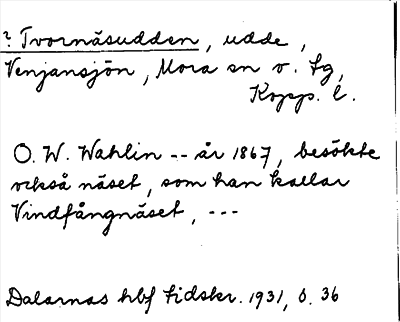 ? Tvornäsudden, udde,
Venjansjön, Mora sn v. fg,
Kopp. l.
O. W. Wahlin -- år 1867, besökte
också näset, som han kallar
Vindfångnäset, ---
Dalarnas hbf tidskr. 1931, s. 36